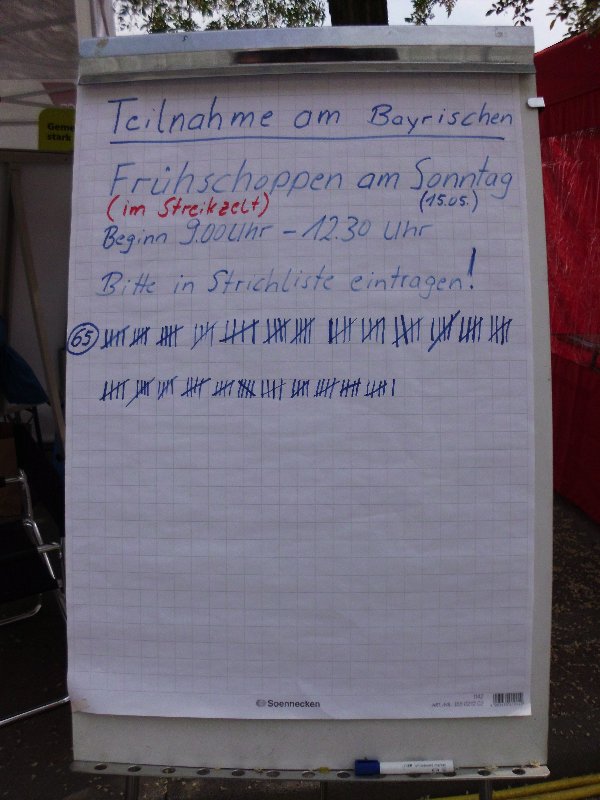 Teilnahme am Bayrischen
Frühschoppen am Sonntag
(im Streikzelt) (15.05.)
Beginn 9.00 Uhr - 12.30 Uhr
Bitte in Strichliste eintragen!
65
Soennecken